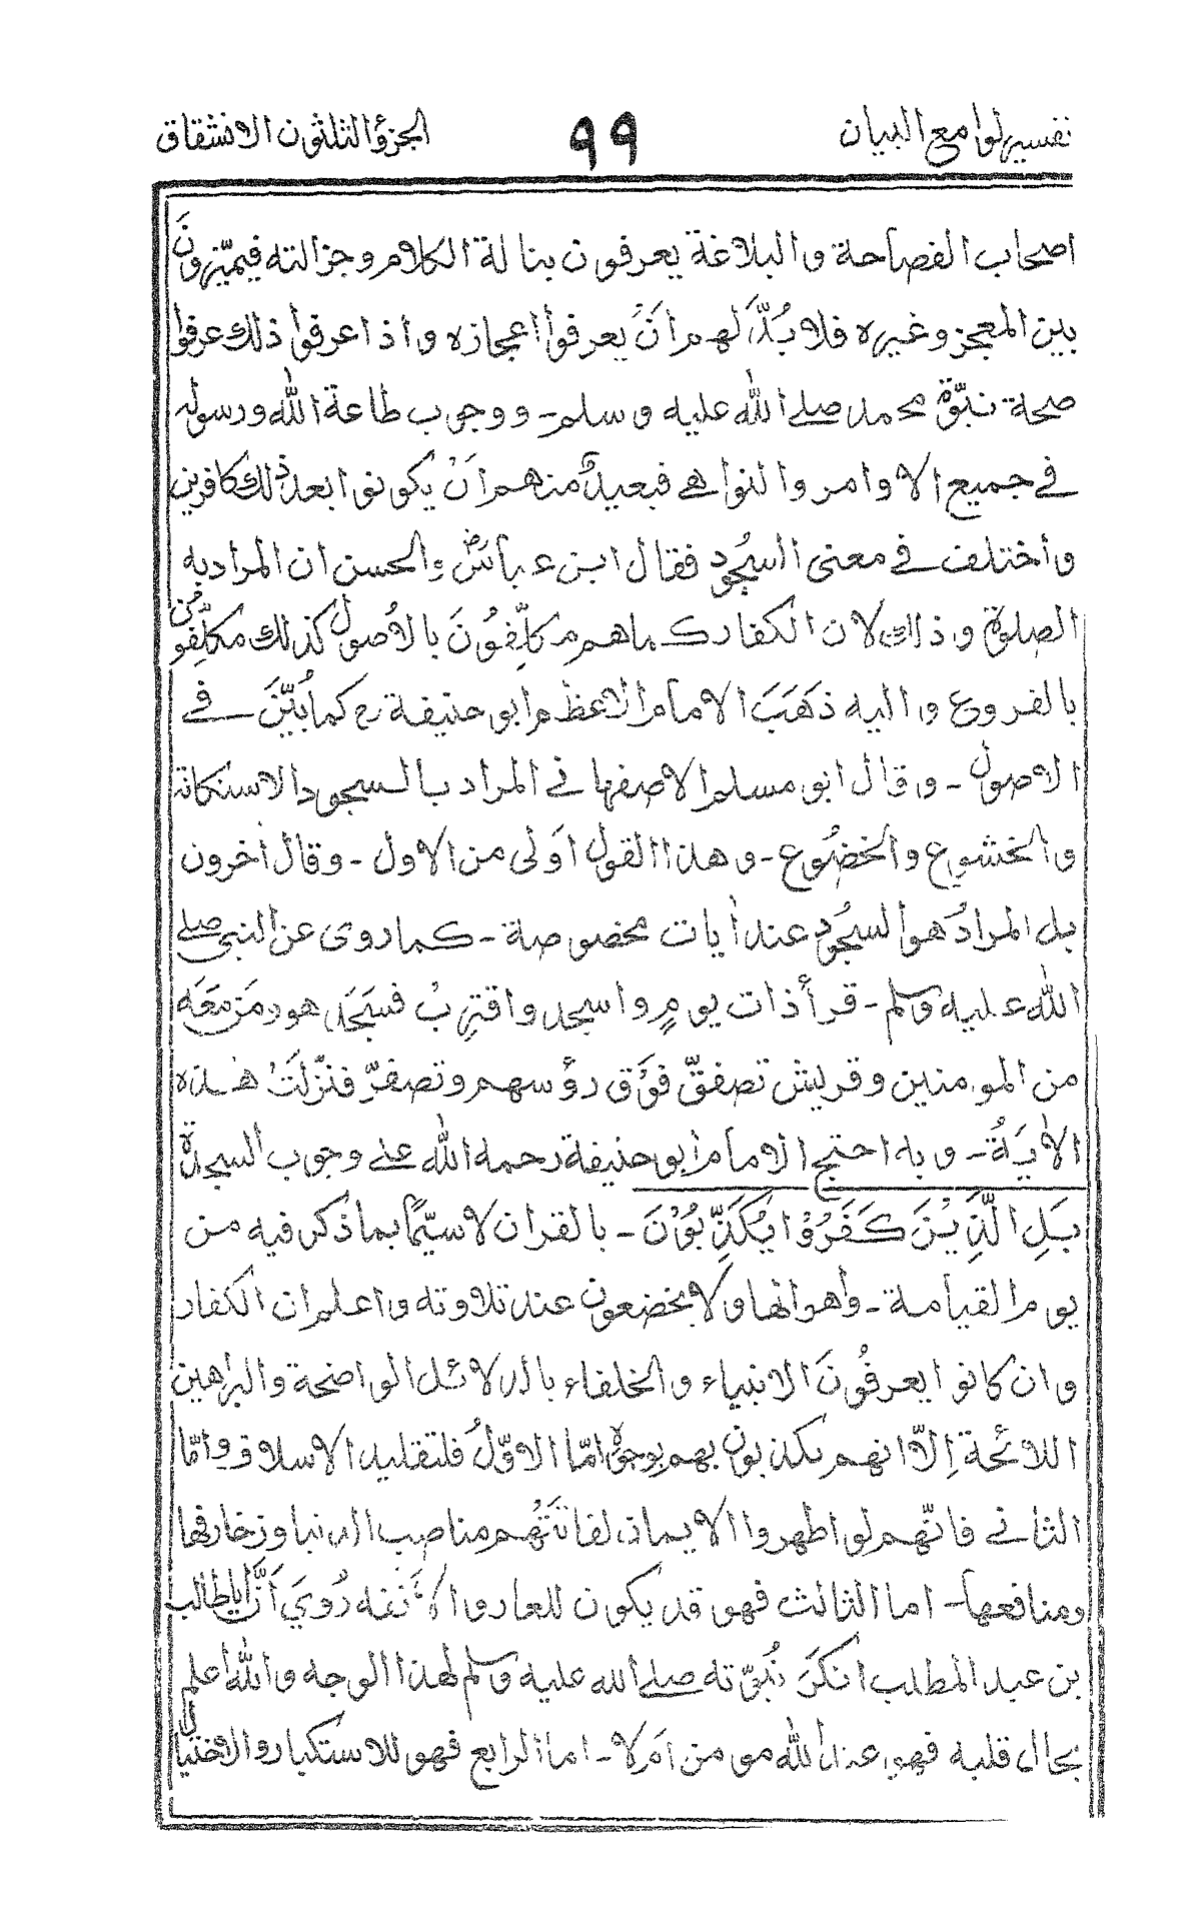 تفسير لوامع البيان
٩٩
الجزؤ الثلثون الانشقاق
اصحاب الفصاحة والبلاغة يعرفون بنالة الكلام وجزالته فيميّزونَ
بين المعجز وغيره فلا بُدَّ لهم اَنْ يعرفوا اعجازه واذا عرفوا ذلك عرفوا
صحة نبوّة محمد صلے الله عليه وسلم۔ ووجوب طاعة الله ورسوله
فے جميع الاوامر والنواهے فبعيدٌ منهم اَنْ يكونوا بعد ذلك كافرين
واختلف فے معنى السُجود فقال ابن عباسؓ والحسن ان المراد به
الصلوة وذلك لان الكفار كما هم مكلّفُونَ بالاُصول كذلك مكلّفون
بالفروع واليه ذَهَبَ الامام الاعظم ابو حنيفةؒ كما بُيّنَ فے
الاصول۔ وقال ابو مسلم الاصفهانے المراد بالسجود الاستكانة
والخشوع والخضُوع۔ وهذا القول اَولى من الاول۔ وقال اٰخرون
بل المرادُ هو السجُود عند اٰيات مخصوصة۔ كما روى عن النبى صلے
الله عليه وسلم۔ قرأ ذات يومٍ واسجد واقترِبْ فسَجَدَ هو ومَن مَعَه
من المومنين وقريش تصفقّ فوَق رؤسهم وتصفرّ فنزّلَتْ هذه
الاٰيَةُ۔ وبه احتج الامام ابو حنيفة رحمه الله علے وجوب السجدة
بَلِ الَّذِيْنَ كَفَرُوْا يُكَذِّبُوْنَ۔ بالقراٰن لا سيّما بما ذكر فيه من
يوم القيامة۔ واهوالها ولا يخضعون عند تلاوته واعلم ان الكفار
وان كانوا يعرفُونَ الانبياء والخلفاء بالدلائل الواضحة والبراهين
اللائحة اِلّا انهم يكذبون بهم بوجوه امّا الاوّلُ فلتقليد الاسلاف وامّا
الثانے فانّهم لو اظهروا الايمان لفاتَتْهُم مناصب الدنيا وزخارفها
ومنافعها۔ اما الثالث فهو قد يكون للعار والاَنَفه رُوِيَ اَنَّ اباطالب
بن عبد المطلب انكرَ نُبوّته صلے الله عليه وسلم لهذا الوجه والله اعلم
بحال قلبه فهو عند الله مومن اَم لا۔ اما الرابع فهو للاستكبار والاختيال